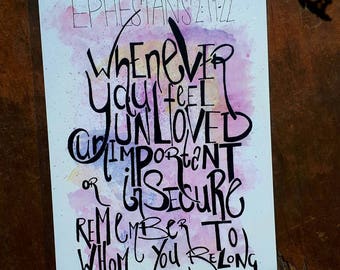 EPHESIANS 2:19-22
WHENEVER
YOU FEEL
UNLOVED
UNIMPORTANT
OR INSECURE
REMEMBER TO
WHOM YOU BELONG